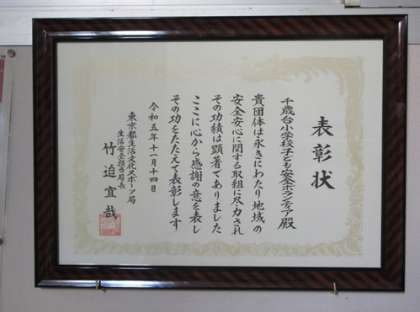 表彰状
千歳台小学校子ども安全ボランティア殿
貴団体は永きにわたり地域の
安全安心に関する取組に尽力され
その功績は顕著でありました
ここに心から感謝の意を表し
その功をたたえて表彰します
令和五年十一月十四日
東京都生活文化スポーツ局
生活安全担当局長
竹迫宜哉